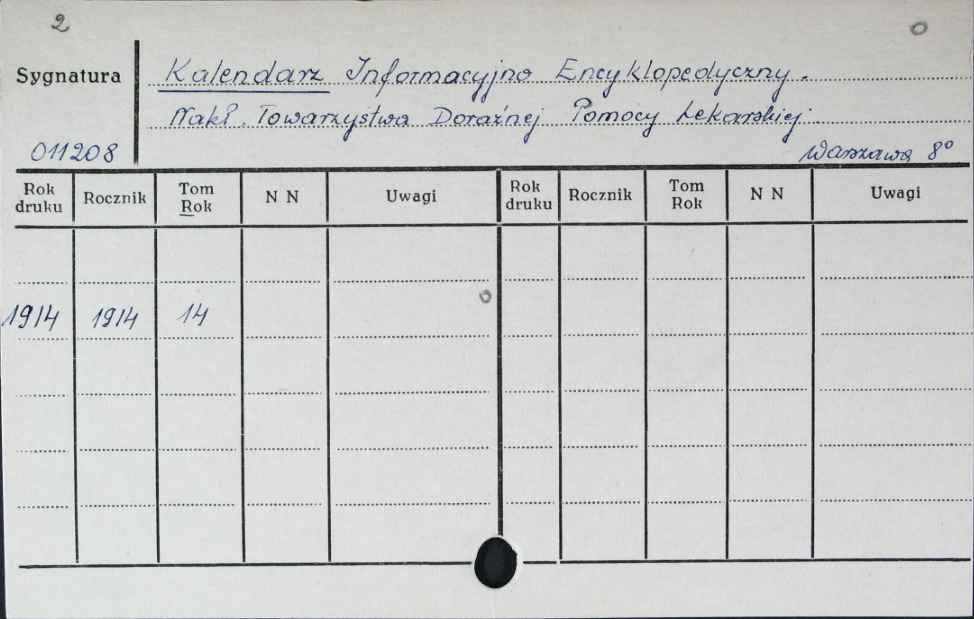 2
Sygnatura
Kalendarz Informacyjno Encyklopedyczny.
Nakł. Towarzystwa Doraźnej Pomocy Lekarskiej
011208
Warszawa 8°
Rok druku Rocznik Tom Rok N N Uwagi Rok druku Rocznik Tom Rok N N Uwagi
1914 1914 14